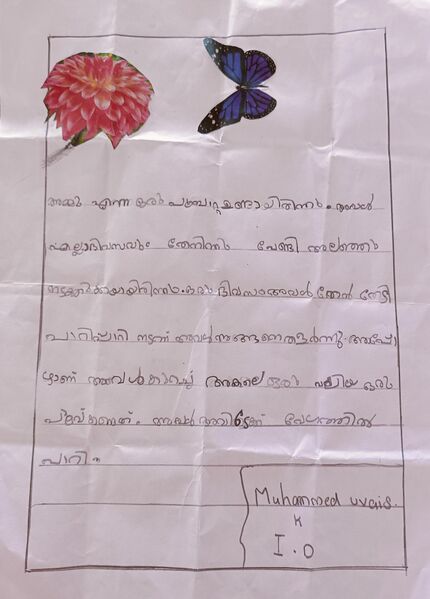 അമ്മു എന്ന ഒരു പൂമ്പാറ്റ ഉണ്ടായിരുന്നു. അവൾ
എല്ലാദിവസവും തേനിനു വേണ്ടി അലഞ്ഞു
നടക്കുകയായിരുന്നു. ഒരു ദിവസം അവൾ തേൻ തേടി
പാറിപ്പാറി നടന്ന് അവൾ തളർന്നു. അപ്പോ
ഴാണ് അവൾ കുറച്ച് അകലെ ഒരു വലിയ ഒരു
പൂവ് കണ്ടത്. അവൾ അവിടേക്ക് വേഗത്തിൽ
പാറി.
Muhammed uvais.
K
I.D